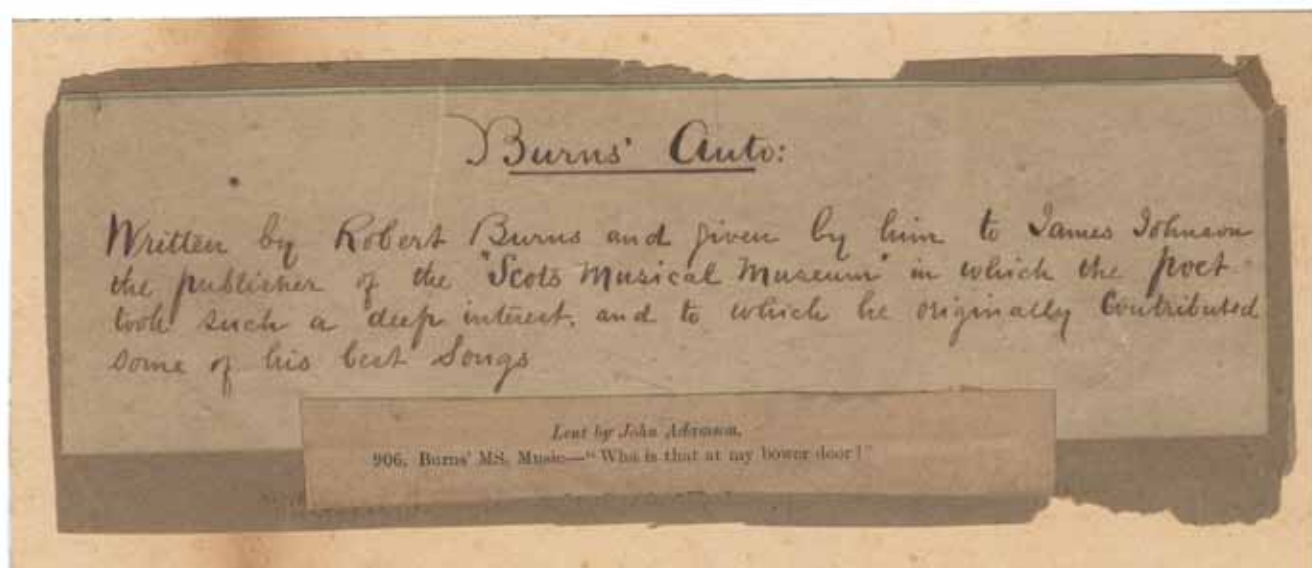 Burns' Auto:
Written by Robert Burns and given by him to James Johnson
the publisher of the "Scots Musical Museum" in which the poet
took such a deep interest, and to which he originally Contributed
some of his best Songs
Lent by John Adamson.
906. Burns' MS. Music—"Who is that at my bower door!"